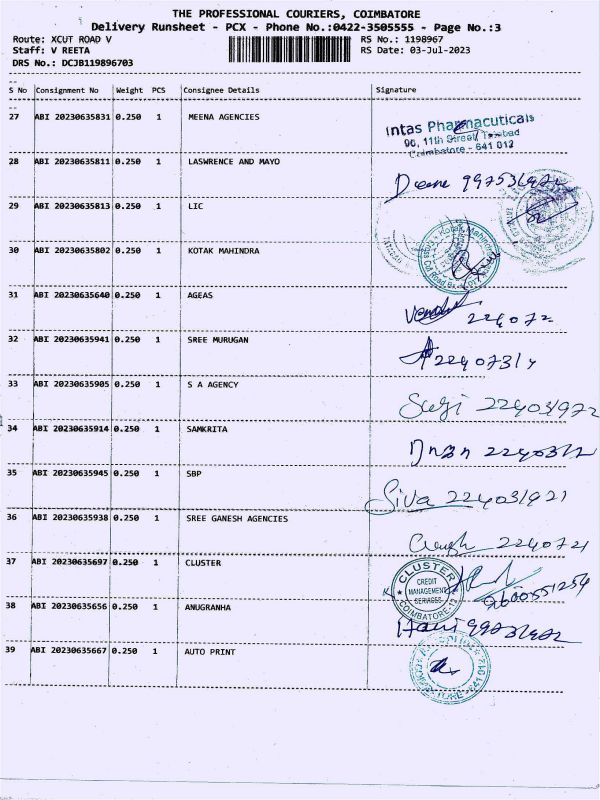 THE PROFESSIONAL COURIERS, COIMBATORE
Delivery Runsheet - PCX - Phone No.:0422-3505555 - Page No.:3
Route: XCUT ROAD V RS No.: 1198967
Staff: V REETA RS Date: 03-Jul-2023
DRS No.: DCJB119896703
S No Consignment No Weight PCS Consignee Details Signature
27 ABI 20230635831 0.250 1 MEENA AGENCIES
Intas Pharmacuticals
90, 11th Street
Coimbatore - 641 012
28 ABI 20230635811 0.250 1 LASWRENCE AND MAYO
29 ABI 20230635813 0.250 1 LIC
30 ABI 20230635802 0.250 1 KOTAK MAHINDRA
Kotak Mahindra
31 ABI 20230635640 0.250 1 AGEAS
224072
32 ABI 20230635941 0.250 1 SREE MURUGAN
33 ABI 20230635905 0.250 1 S A AGENCY
34 ABI 20230635914 0.250 1 SAMKRITA
35 ABI 20230635945 0.250 1 SBP
Siva 224031921
36 ABI 20230635938 0.250 1 SREE GANESH AGENCIES
2240721
37 ABI 20230635697 0.250 1 CLUSTER
CLUSTER
CREDIT
MANAGEMENT
SERVICES
COIMBATORE-12
9600551254
38 ABI 20230635656 0.250 1 ANUGRANHA
39 ABI 20230635667 0.250 1 AUTO PRINT